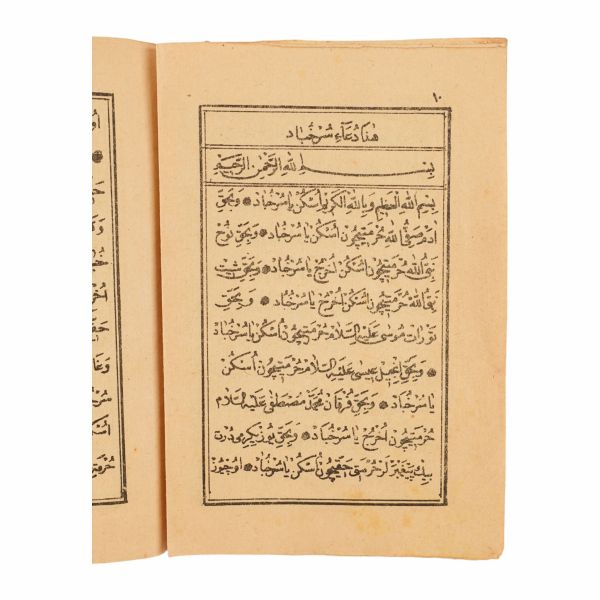 ١٠
هٰذَا دُعَاءِ سُرْخُبَادْ
بِسْمِ اللّٰهِ الرَّحْمٰنِ الرَّحِيمِ
بِسْمِ اللّٰهِ الْعَظِيمِ وَبِاللّٰهِ الْكَرِيمِ اُسْكُنْ يَا سُرْخُبَادْ ۞ وَبِحَقِّ
اٰدَمَ صَفِىُّ اللّٰهِ حُرْمَتِيچُونْ اُسْكُنْ يَا سُرْخُبَادْ ۞ وَبِحَقِّ نُوحْ
نَبِىُّ اللّٰهِ حُرْمَتِيچُونْ اُسْكُنْ اُخْرُجْ يَا سُرْخُبَادْ ۞ وَبِحَقِّ شِيتْ
نَبِىُّ اللّٰهِ حُرْمَتِيچُونْ اُسْكُنْ اُخْرُجْ يَا سُرْخُبَادْ ۞ وَبِحَقِّ
تَوْرَاتِ مُوسٰى عَلَيْهِ السَّلَامْ حُرْمَتِيچُونْ اُسْكُنْ يَا سُرْخُبَادْ
۞ وَبِحَقِّ اِنْجِيلِ عِيسٰى عَلَيْهِ السَّلَامْ حُرْمَتِيچُونْ اُسْكُنْ
يَا سُرْخُبَادْ ۞ وَبِحَقِّ فُرْقَانِ مُحَمَّدْ مُصْطَفٰى عَلَيْهِ السَّلَامْ
حُرْمَتِيچُونْ اُخْرُجْ يَا سُرْخُبَادْ ۞ وَبِحَقِّ يُوزْ يِكِرْمِى دُرْتْ
بِيكْ پَيْغَمْبَرْلَرْ حُرْمَتِى حَقِّيچُونْ اُسْكُنْ يَا سُرْخُبَادْ ۞ اُوچْيُوزْ